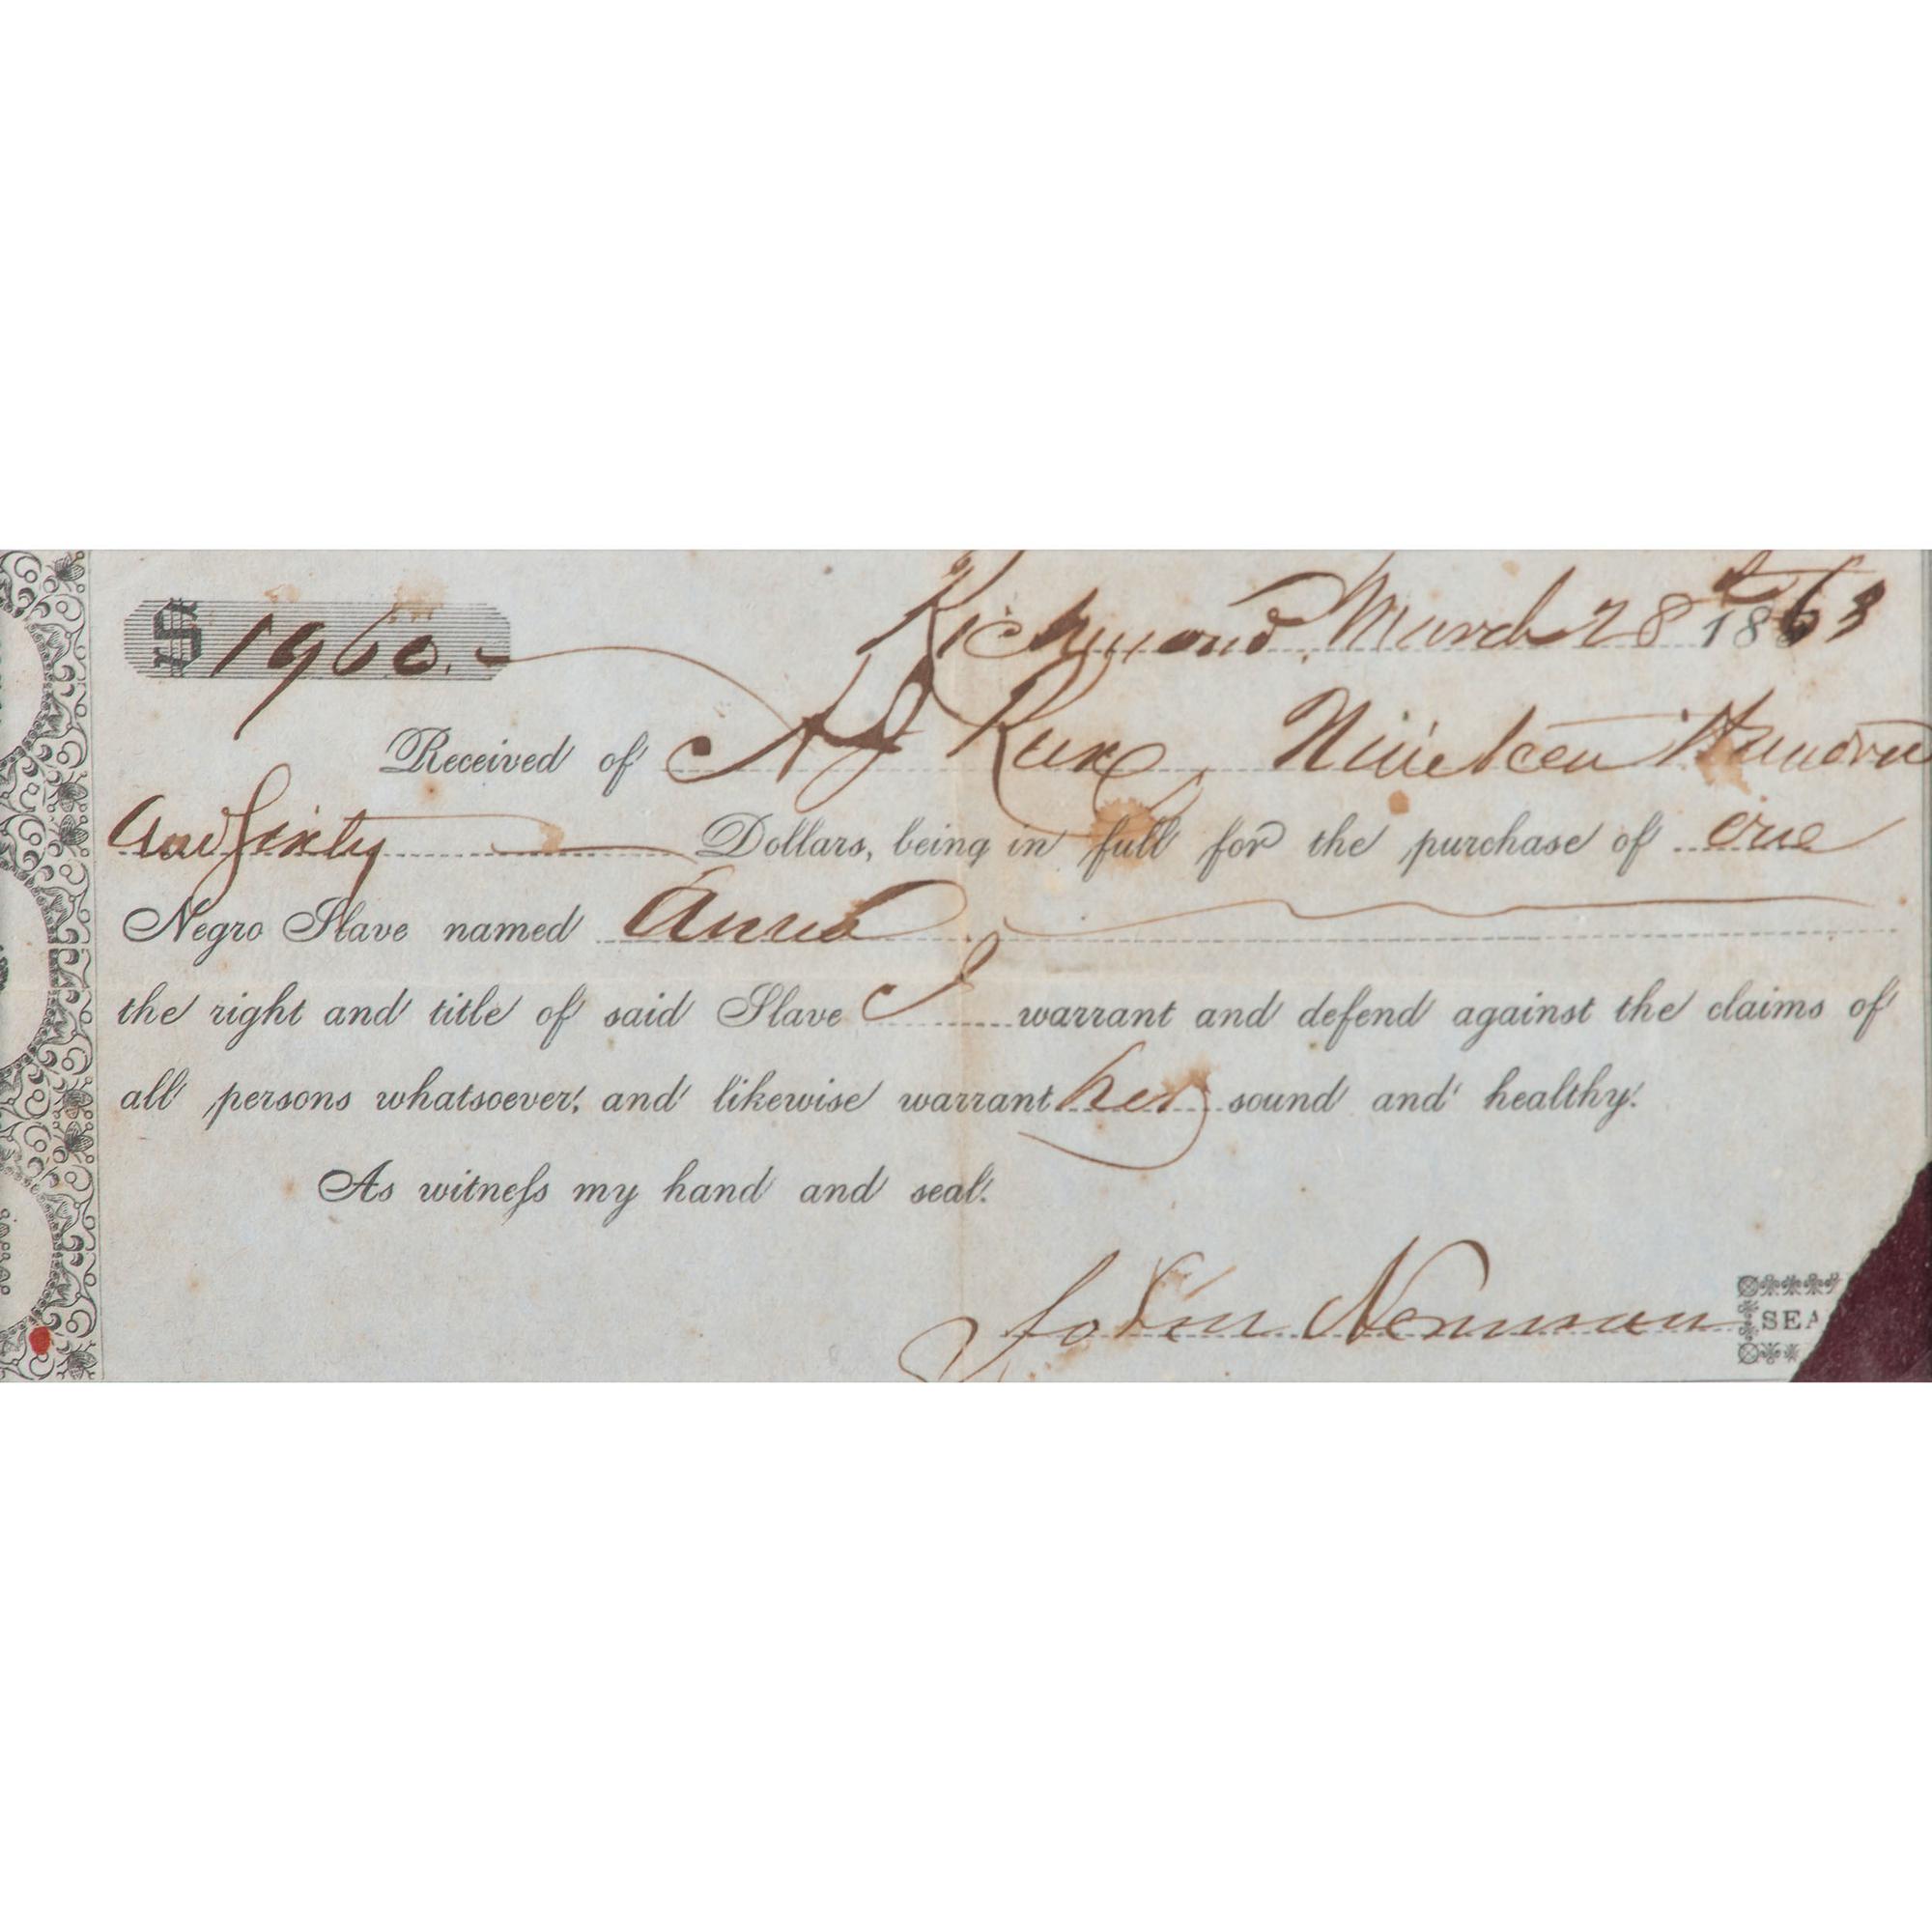 $1960. Richmond, March 28th 1863
Received of A J Rux, Nineteen Hundred
and Sixty Dollars, being in full for the purchase of one
Negro Slave named Anna
the right and title of said Slave I warrant and defend against the claims of
all persons whatsoever, and likewise warrant her sound and healthy.
As witness my hand and seal.
John Newman SEA